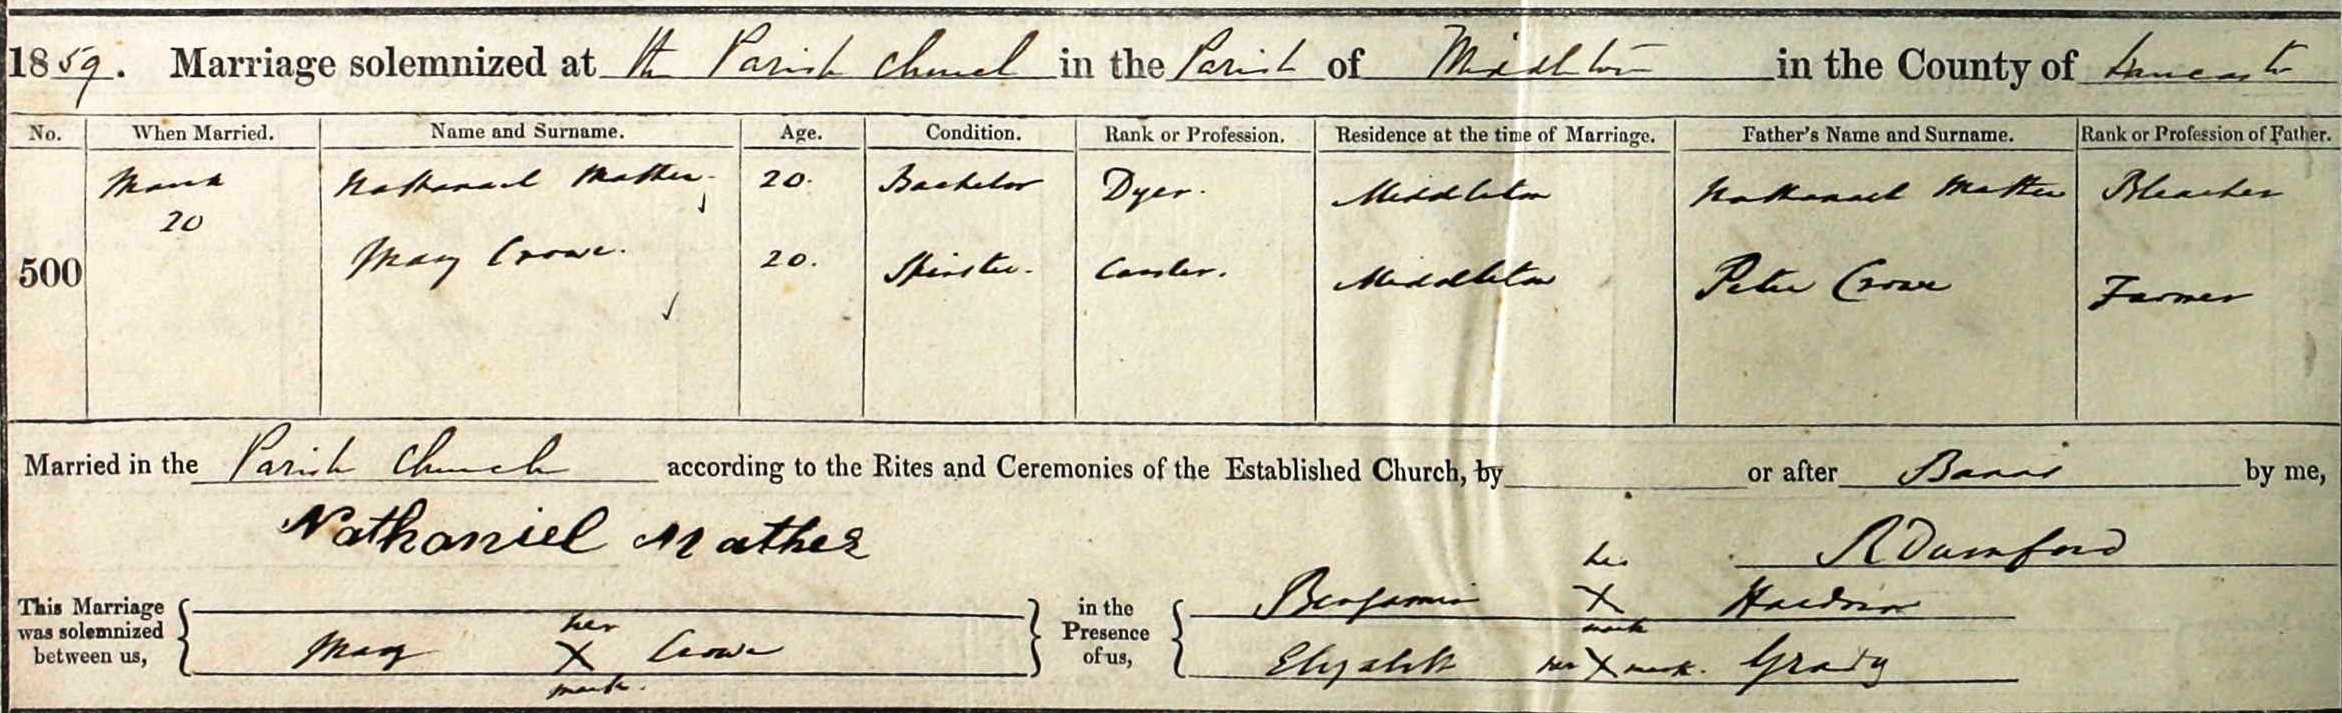 1859. Marriage solemnized at the Parish Church in the Parish of Middleton in the County of Lancaster
No. When Married. Name and Surname. Age. Condition. Rank or Profession. Residence at the time of Marriage. Father's Name and Surname. Rank or Profession of Father.
March Nathanael Mather. 20. Bachelor Dyer. Middleton Nathanael Mather Bleacher
20
500 Mary Crowe. 20. Spinster. Middleton Peter Crowe Farmer
Married in the Parish Church according to the Rites and Ceremonies of the Established Church, by or after Banns by me,
Nathaniel Mather R Durnford
This Marriage was solemnized between us, Mary her X mark. Crowe in the Presence of us, Benjamin his X mark
Elizabeth her X mark. Grady